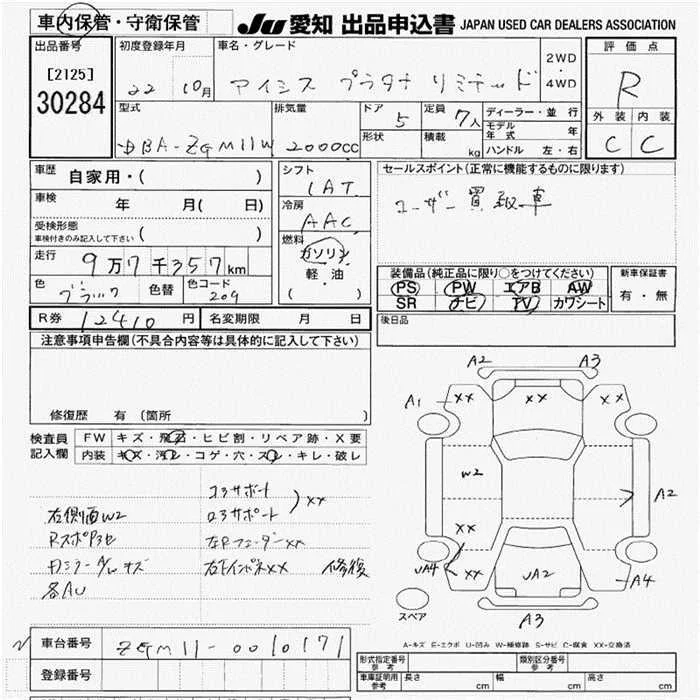 車内保管・守衛保管
JU 愛知 出品申込書 JAPAN USED CAR DEALERS ASSOCIATION
出品番号
[2125]
30284
初度登録年月
22 10月
車名・グレード
アイシス プラタナ リミテッド
2WD
・
4WD
評価点
R
外装 内装
C C
型式
DBA-ZGM11W
排気量
2000cc
ドア
5
形状
定員
7人
積載
kg
ディーラー・並行
モデル年式 年
ハンドル 左・右
車歴
自家用・( )
車検
年 月( 日)
受検形態
車検付きのみ記入して下さい ( )
走行
9万7千357km
色
ブラック
色替
色コード
209
シフト
IAT
冷房
AAC
燃料
ガソリン
軽・油
( )
セールスポイント(正常に機能するものに限ります)
ユーザー買取車
装備品(純正品に限り○をつけてください)
PS PW エアB AW
SR ナビ TV カワシート
新車保証書
有・無
後日品
R券 12410円
名変期限 月 日
注意事項申告欄(不具合内容等は具体的に記入して下さい)
修復歴 有(箇所 )
検査員記入欄
FW キズ・飛石・ヒビ割・リペア跡・X要
内装 キズ・汚レ・コゲ・穴・スレ・キレ・破レ
コアサポート
ロアサポート
XX
右側面W2
RスポPコセ
左Rフェンダー XX
右ドインパネXX 修復
各AU
A2 A3
A1 XX XX XX
W2
A2
XX
UA4 XX
UA2
A4
A3
スペア
A-キズ E-エクボ U-凹み W-補修跡 S-サビ C-腐食 XX-交換済
車台番号
ZGM11-0010171
登録番号
形式指定番号
参考
類別区分番号
参考
車庫証明用
参考
長さ cm 幅 cm 高さ cm